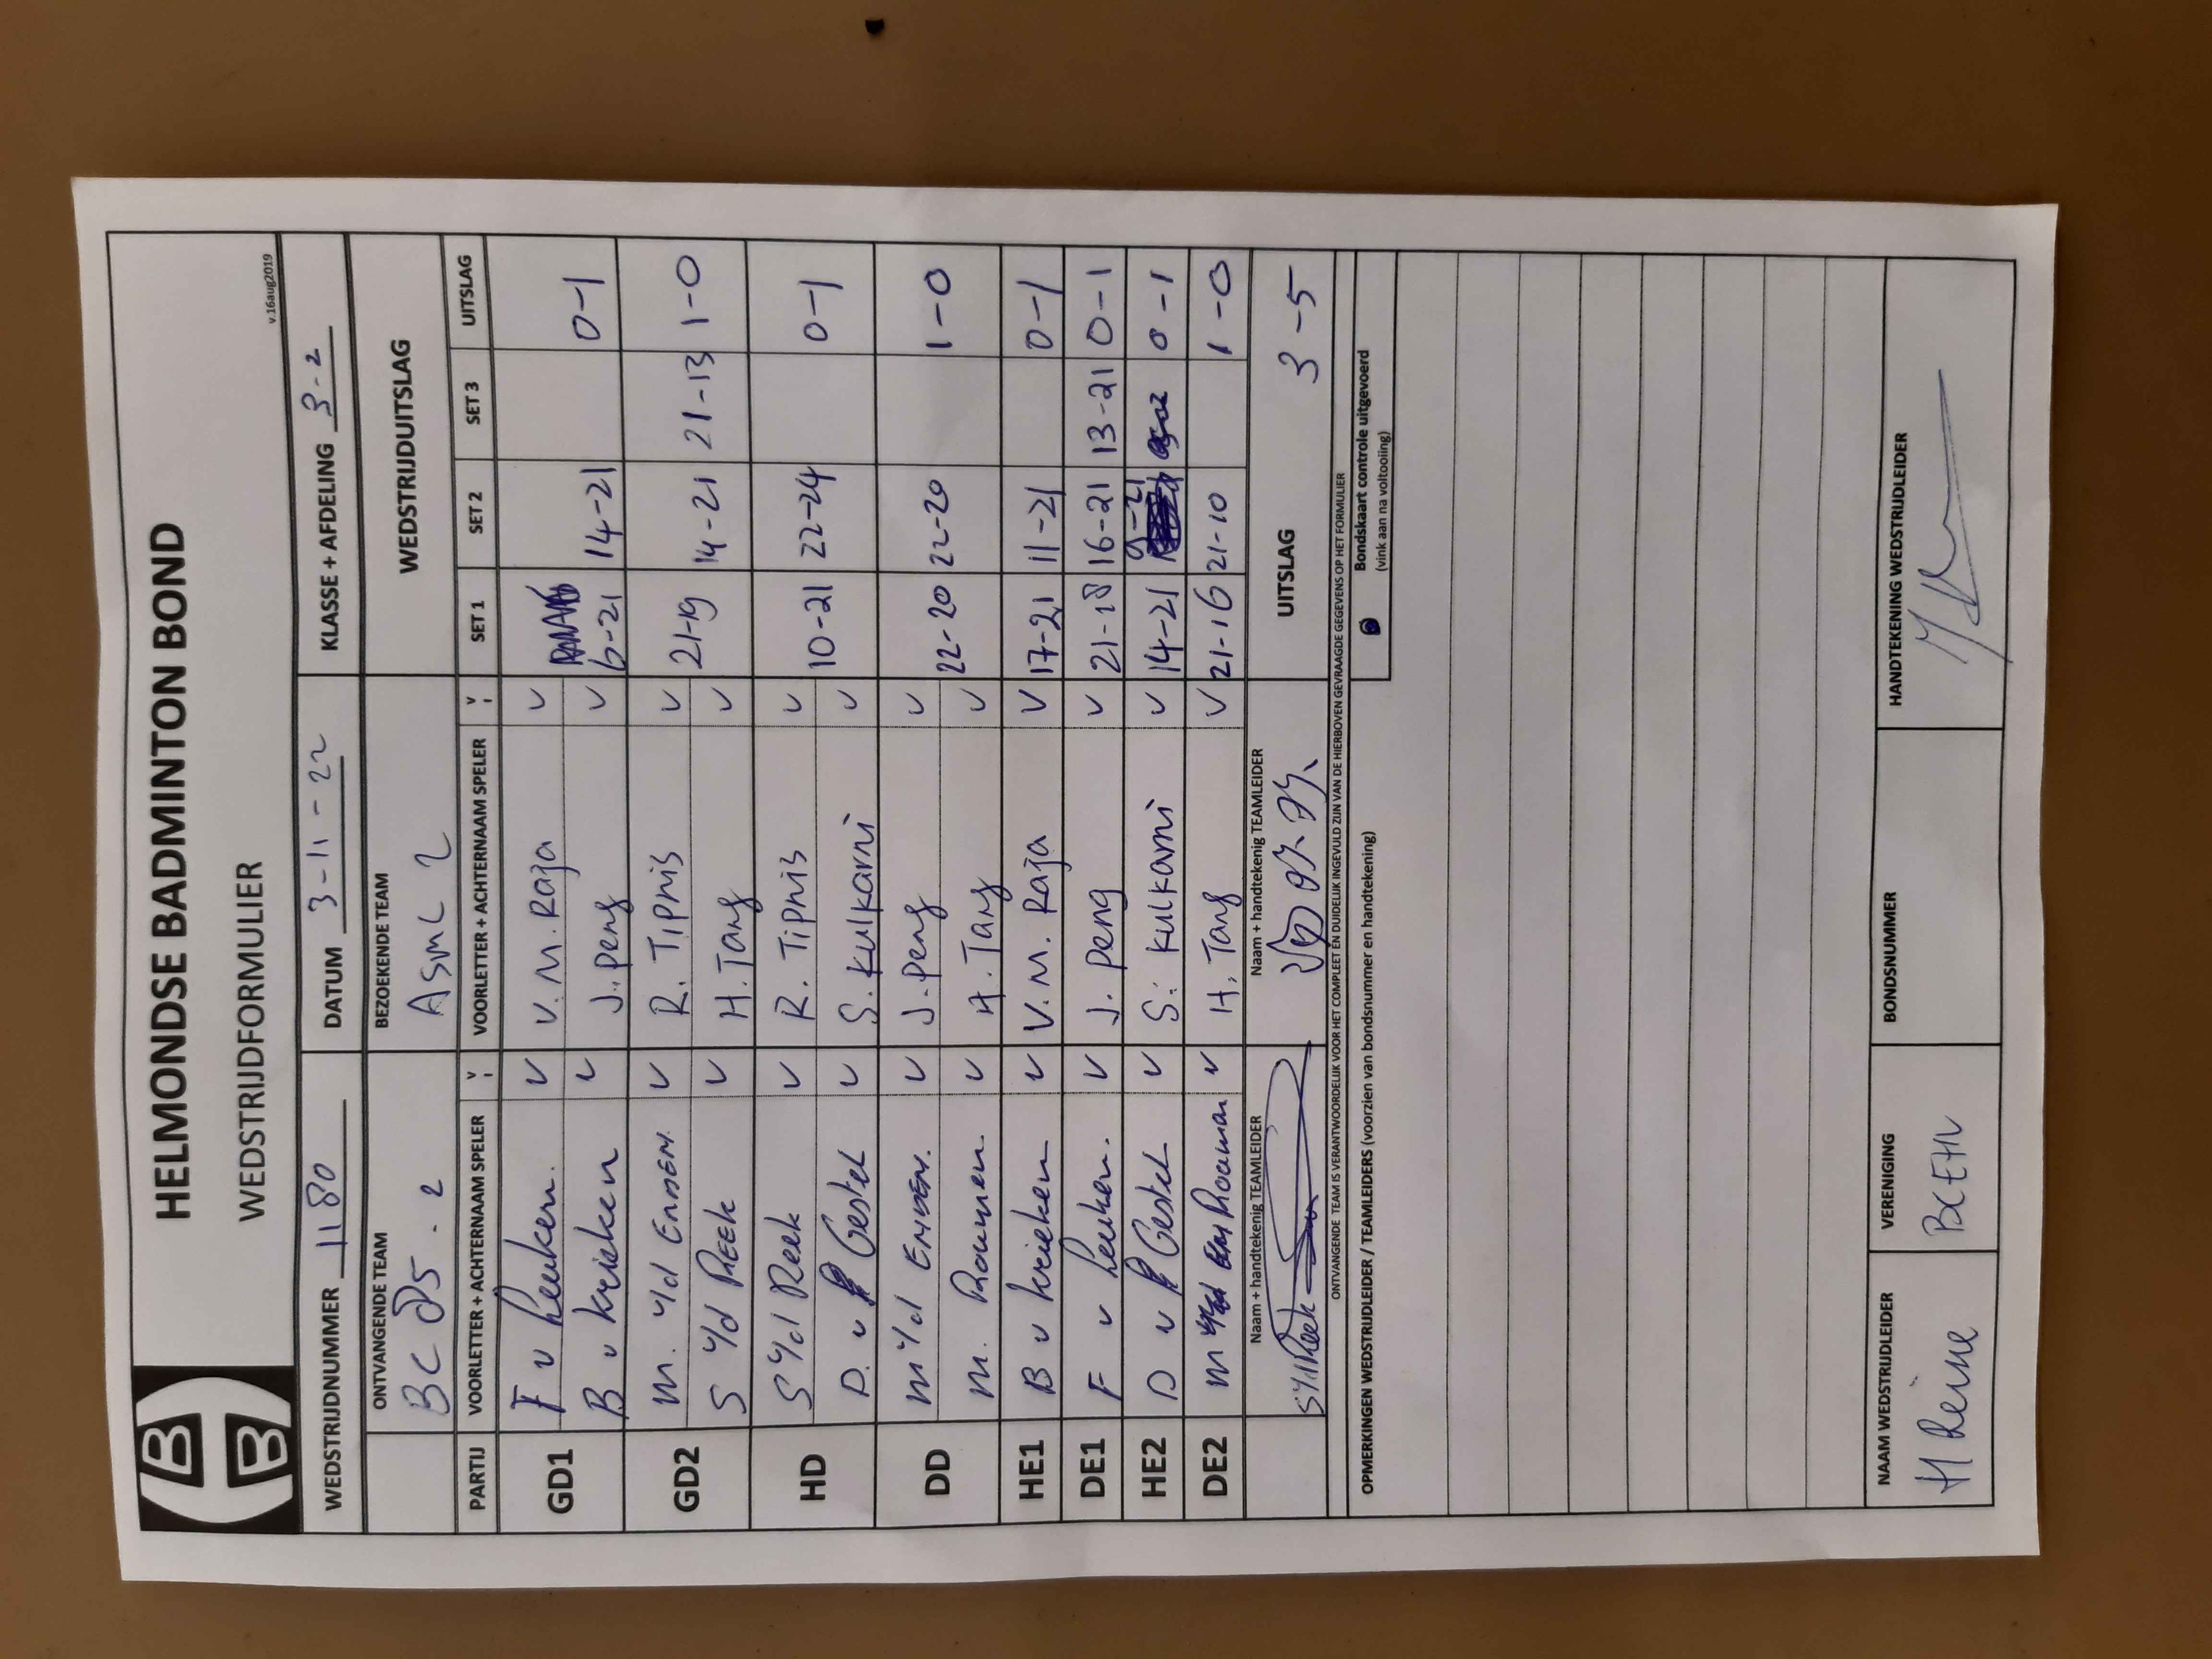 HELMONDSE BADMINTON BOND
WEDSTRIJDFORMULIER
v.16aug2019
WEDSTRIJDNUMMER 1180 DATUM 3-11-22 KLASSE + AFDELING 3-2
ONTVANGENDE TEAM BEZOEKENDE TEAM WEDSTRIJDUITSLAG
BC 85 . 2 ASML 2
PARTIJ VOORLETTER + ACHTERNAAM SPELER V VOORLETTER + ACHTERNAAM SPELER V SET 1 SET 2 SET 3 UITSLAG
GD1 F v Leuken. v V. M. Raja v
B v krieken v J. Peng v 6-21 14-21 0-1
GD2 M. v/d EMDEN. v R. TIPNIS v 21-19 14-21 21-13 1-0
S v/d REEK v H. Tang v
HD S v/d Reek v R. TIPNIS v 10-21 22-24 0-1
D. v Gestel v S. Kulkarni v
DD M v/d EMDEN. v J. Peng v 22-20 22-20 1-0
M. Rooumen v H. Tang v
HE1 B v krieken v V. M. Raja v 17-21 11-21 0-1
DE1 F v Leuken. v J. Peng v 21-18 16-21 13-21 0-1
HE2 D v Gestel v S. Kulkarni v 14-21 9-21 0-1
DE2 M v H. Tang v 21-16 21-10 1-0
Naam + handtekenig TEAMLEIDER Naam + handtekenig TEAMLEIDER UITSLAG 3-5
S v/d Reek
ONTVANGENDE TEAM IS VERANTWOORDELIJK VOOR HET COMPLEET ÉN DUIDELIJK INGEVULD ZIJN VAN DE HIERBOVEN GEVRAAGDE GEGEVENS OP HET FORMULIER
OPMERKINGEN WEDSTRIJDLEIDER / TEAMLEIDERS (voorzien van bondsnummer en handtekening)
Bondskaart controle uitgevoerd
(vink aan na voltooiing)
NAAM WEDSTRIJDLEIDER VERENIGING BONDSNUMMER HANDTEKENING WEDSTRIJDLEIDER
H Reine BCEHV